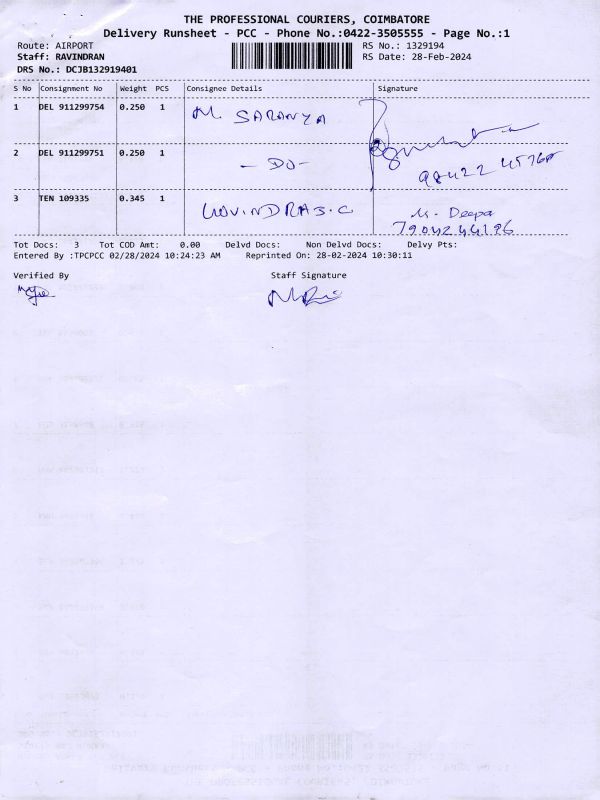 THE PROFESSIONAL COURIERS, COIMBATORE
Delivery Runsheet - PCC - Phone No.:0422-3505555 - Page No.:1
Route: AIRPORT RS No.: 1329194
Staff: RAVINDRAN RS Date: 28-Feb-2024
DRS No.: DCJB132919401
S No Consignment No Weight PCS Consignee Details Signature
1 DEL 911299754 0.250 1 M. SARANYA
2 DEL 911299751 0.250 1 - DO -
3 TEN 109335 0.345 1 M. Deepa
7904244196
Tot Docs: 3 Tot COD Amt: 0.00 Delvd Docs: Non Delvd Docs: Delvy Pts:
Entered By :TPCPCC 02/28/2024 10:24:23 AM Reprinted On: 28-02-2024 10:30:11
Verified By Staff Signature